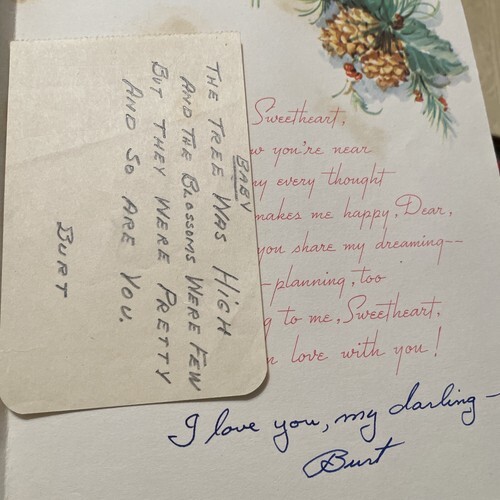 BABY
THE TREE WAS HIGH
AND THE BLOSSOMS WERE FEW
BUT THEY WERE PRETTY
AND SO ARE YOU.
BURT
Sweetheart,
you're near
every thought
makes me happy, Dear,
you share my dreaming--
-planning, too
to me, Sweetheart,
love with you!
I love you, my darling-
Burt